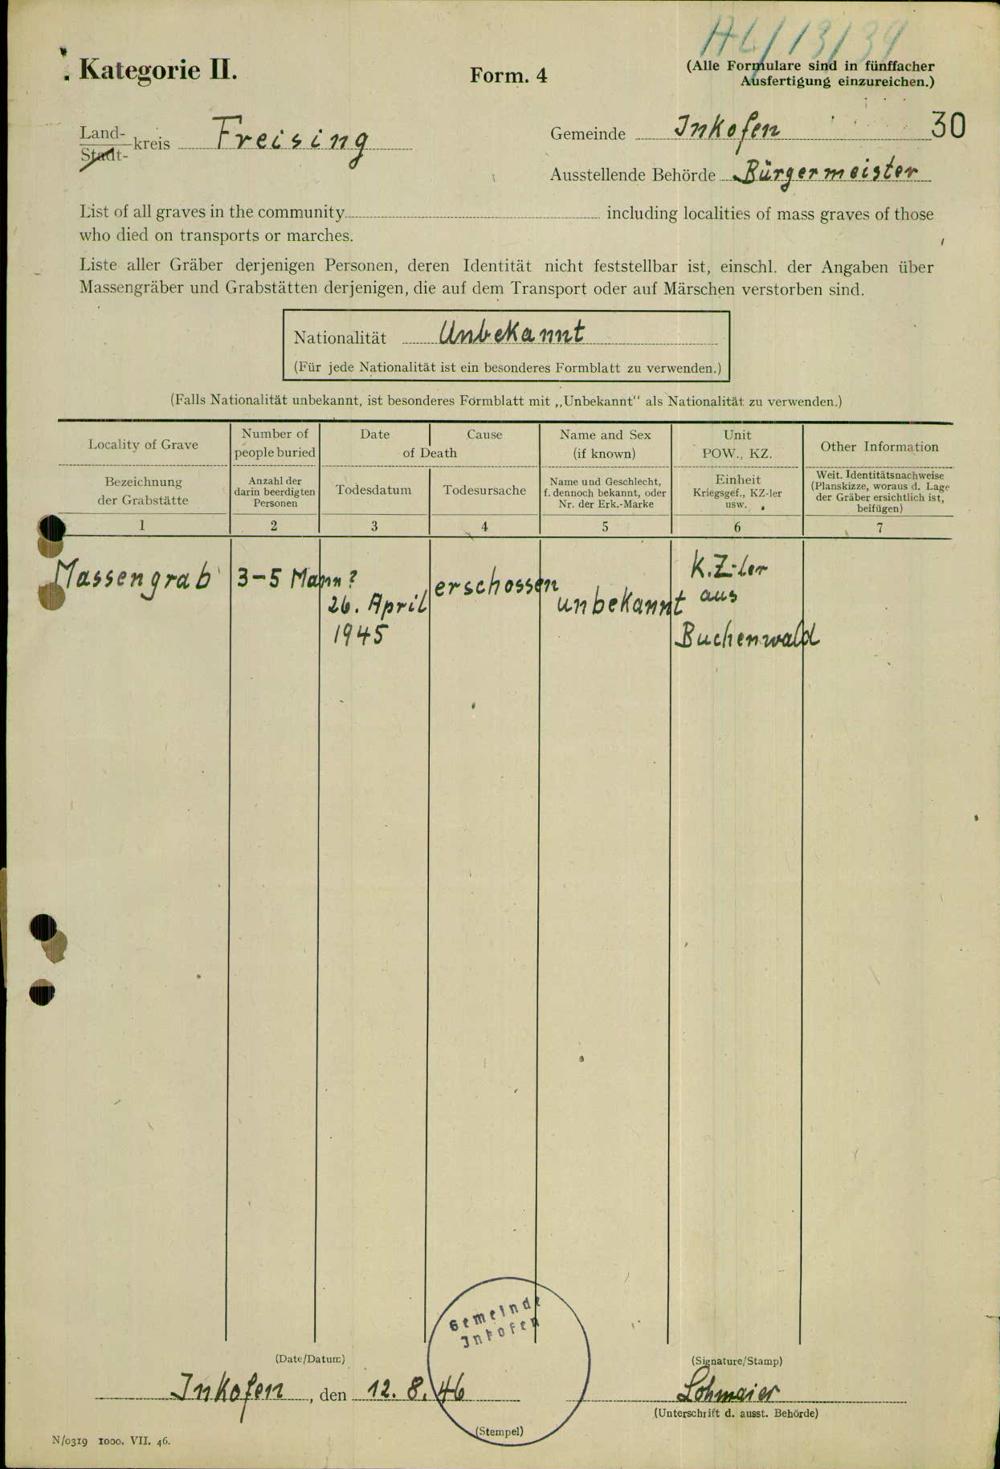 Kategorie II.
Form. 4
(Alle Formulare sind in fünffacher
Ausfertigung einzureichen.)
Land-
Stadt- kreis Freising
Gemeinde Inkofen 30
Ausstellende Behörde Bürgermeister
List of all graves in the community including localities of mass graves of those
who died on transports or marches.
Liste aller Gräber derjenigen Personen, deren Identität nicht feststellbar ist, einschl. der Angaben über
Massengräber und Grabstätten derjenigen, die auf dem Transport oder auf Märschen verstorben sind.
Nationalität Unbekannt
(Für jede Nationalität ist ein besonderes Formblatt zu verwenden.)
(Falls Nationalität unbekannt, ist besonderes Formblatt mit „Unbekannt" als Nationalität zu verwenden.)
Locality of Grave
Number of
people buried
Date Cause
of Death
Name and Sex
(if known)
Unit
POW., KZ.
Other Information
Bezeichnung
der Grabstätte
Anzahl der
darin beerdigten
Personen
Todesdatum
Todesursache
Name und Geschlecht,
f. dennoch bekannt, oder
Nr. der Erk.-Marke
Einheit
Kriegsgef., KZ-ler
usw.
Weit. Identitätsnachweise
(Planskizze, woraus d. Lage
der Gräber ersichtlich ist,
beifügen)
1 2 3 4 5 6 7
Massengrab
3-5 Mann?
26. April
1945
erschossen
unbekannt
K.Z-ler
aus
Buchenwald
Gemeinde
Inkofen
(Date/Datum)
(Signature/Stamp)
Inkofen, den 12. 8. 46
Lohmaier
(Unterschrift d. ausst. Behörde)
(Stempel)
N/0319 1000. VII. 46.